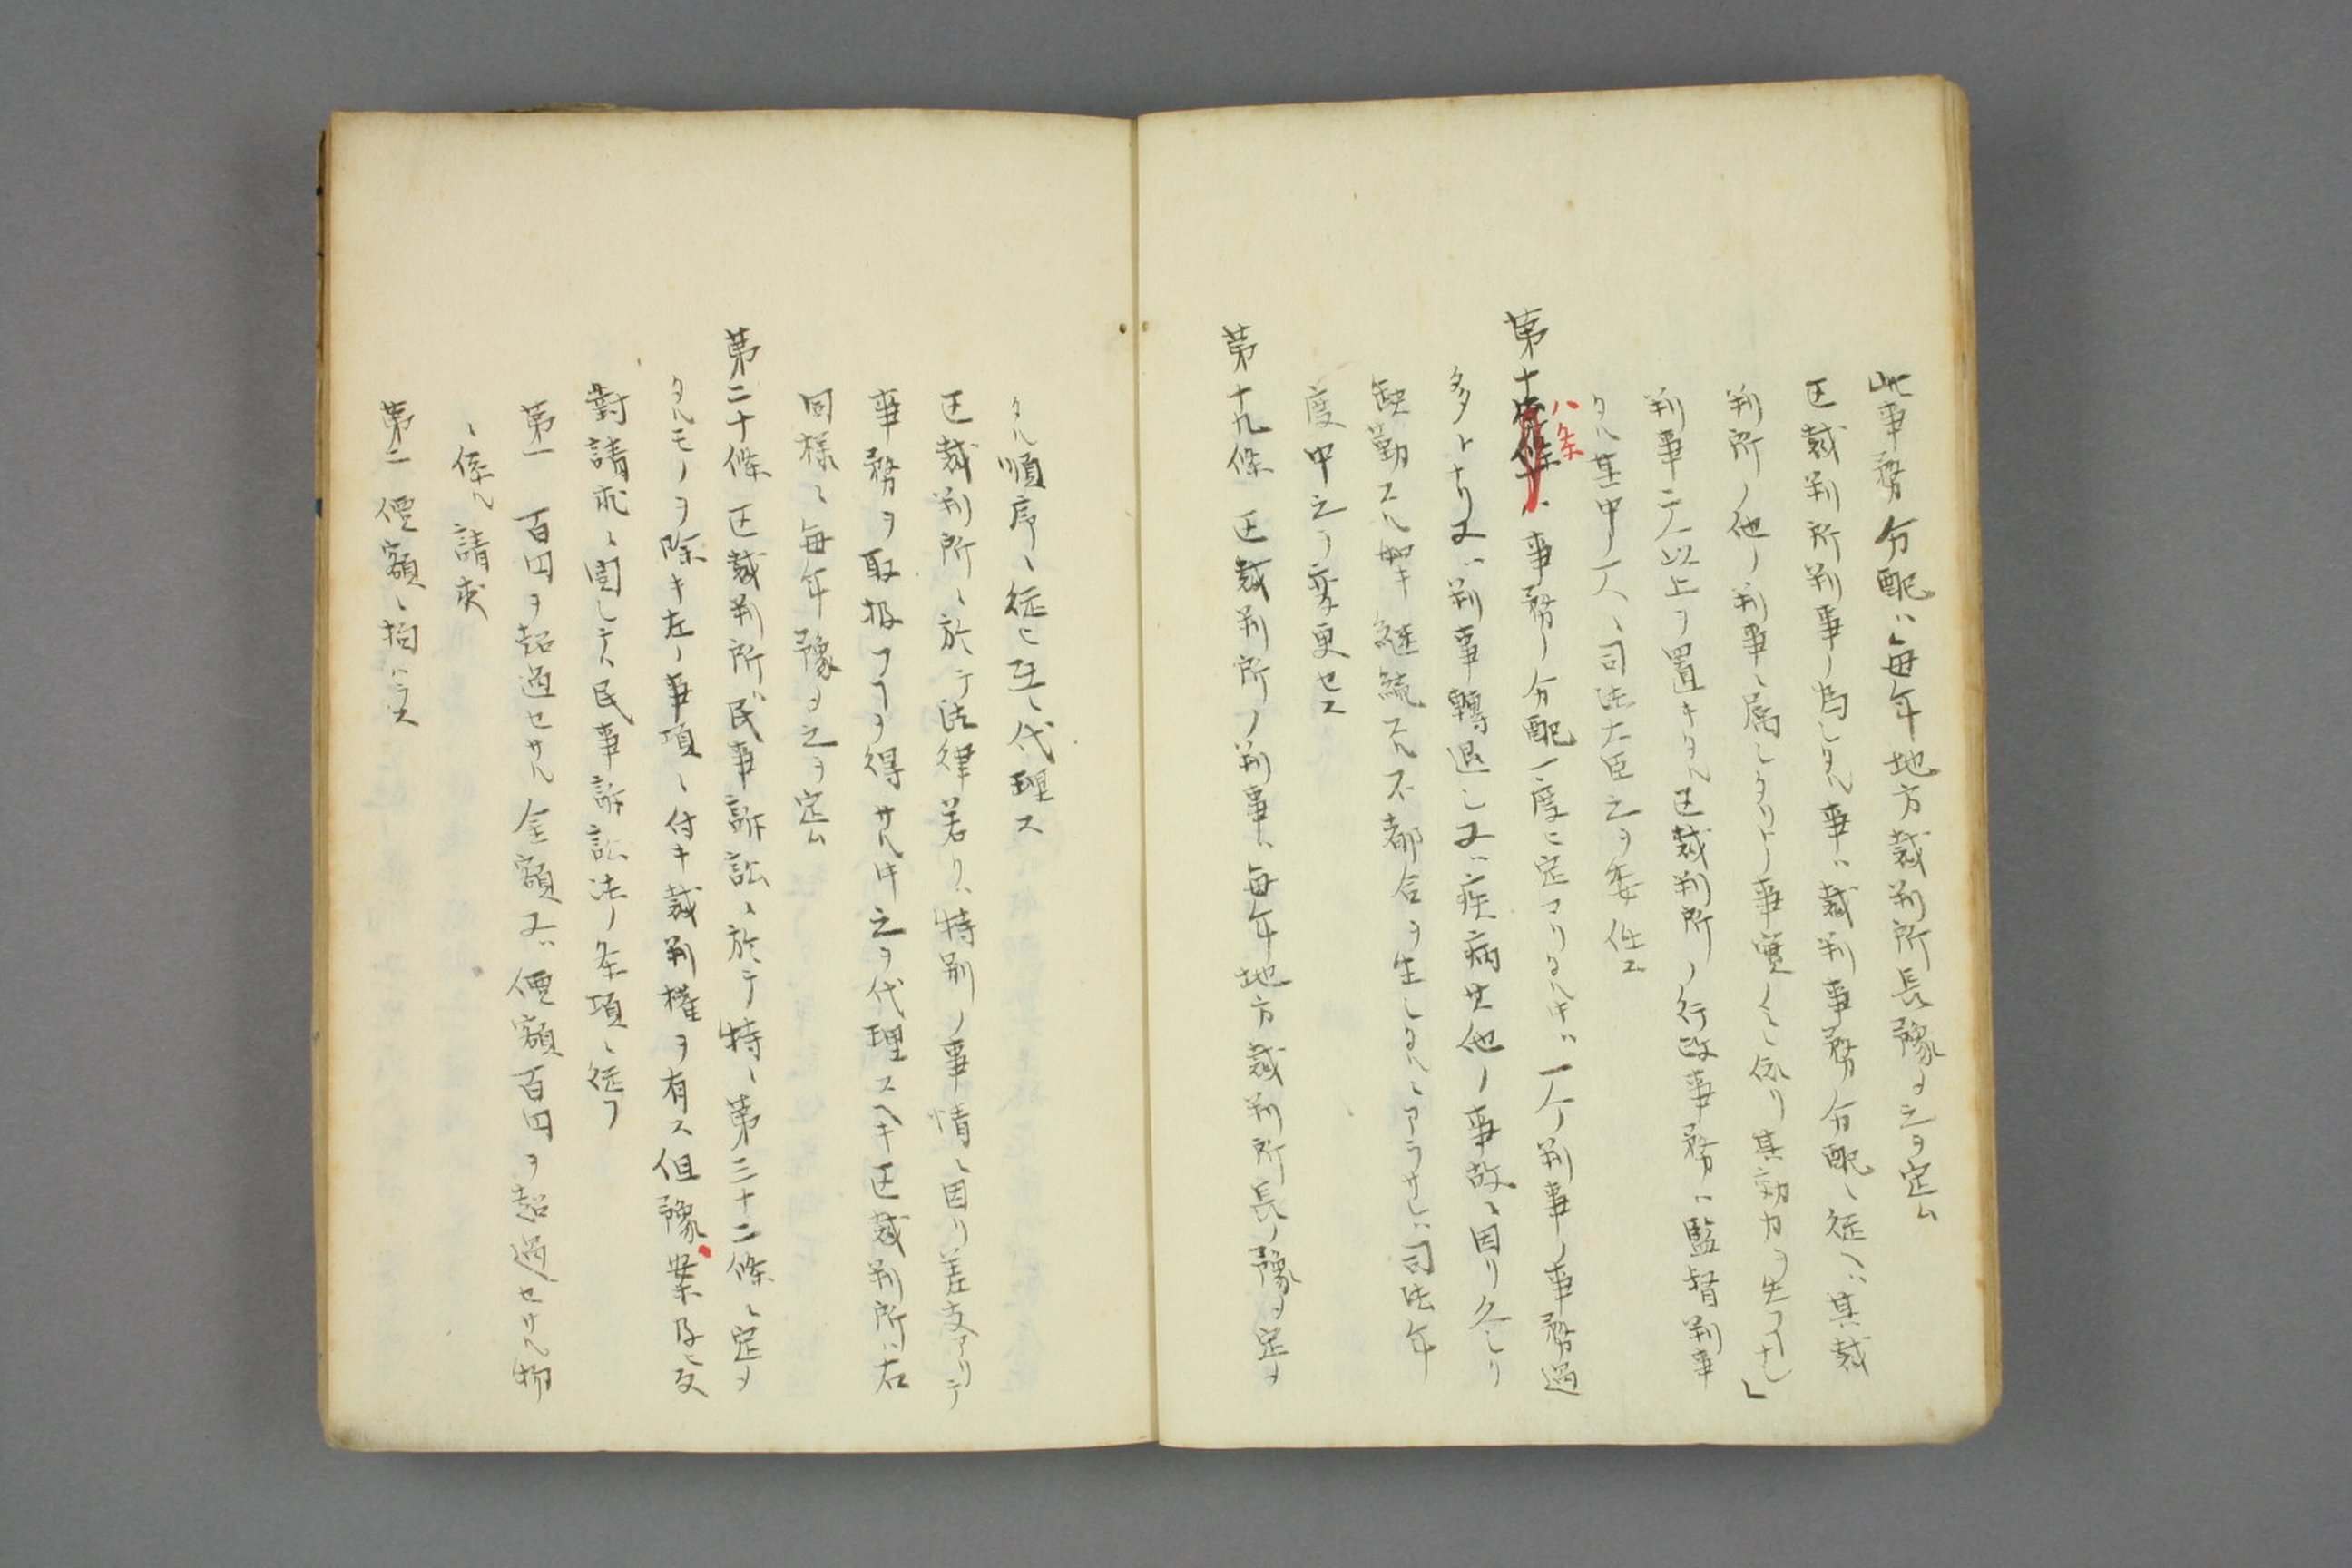 此事務分配ハ毎年地方裁判所長豫メ之ヲ定ム
区裁判所判事ノ為シタル事ハ裁判事務分配ニ從ヘハ其裁
判所ノ他ノ判事ニ属シタリトノ事實ノミニ依リ其効力ヲ失フコトナシ」
判事二人以上ヲ置キタル区裁判所ノ行政事務ハ監督判事
タル其中ノ一人ニ司法大臣之ヲ委任ス
第十八条 事務ノ分配一度ヒ定マリタルトキハ一人ノ判事ノ事務過
多トナリ又ハ判事轉退シ又ハ疾病其他ノ事故ニ因リ久シク
缺勤スル等引継続スル不都合ヲ生シタルニアラサレハ司法年
度中之ヲ変更セス
第十九條 区裁判所ノ判事ハ毎年地方裁判所長ノ豫メ定メ
タル順序ニ従ヒ互ニ代理ス
区裁判所ニ於テ法律若クハ特別ノ事情ニ因リ差支アリテ
事務ヲ取扱フコトヲ得サルトキ之ヲ代理スヘキ区裁判所ハ右
同様ニ毎年豫メ之ヲ定ム
第二十條 区裁判所ハ民事訴訟ニ於テ特ニ第三十二條ニ定メ
タルモノヲ除キ左ノ事項ニ付キ裁判権ヲ有ス但豫案及ヒ反
對請求ニ関シテハ民事訴訟法ノ条項ニ従フ
第一 百円ヲ超過セサル金額又ハ價額百円ヲ超過セサル物
ニ係ル請求
第二 價額ニ拘ハラス